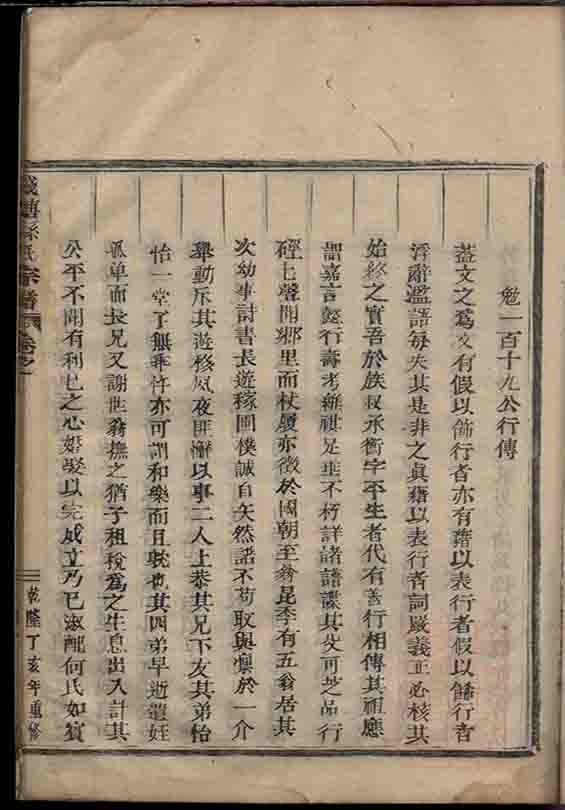 勉一百十九公行傳
蓋文之爲文有假以飾行者亦有藉以表行者假以飾行者
浮辭濫語每失其是非之眞藉以表行者詞嚴義正必核其
始終之實吾於族叔承衡字平生者代有善行相傳其祖應
詔嘉言懿行壽考維祺足垂不朽詳諸譜諜其父可芝品行
硜上聲聞鄉里而杖履亦徵於國朝至翁昆季有五翁居其
次幼事詩書長遊稼圃樸誠自矢然諾不苟取與懍於一介
舉動斥其遊移夙夜匪懈以事二人上恭其兄下友其弟怡
怡一堂了無乖忤亦可謂和樂而且耽也其四弟早逝遺姪
孤单而長兄又謝世翁撫之猶子租稅爲之生息出入計其
公平不聞有利己之心婚娶以完成立乃已淑配何氏如賓
氏宗譜 卷之
乾隆丁亥年重修